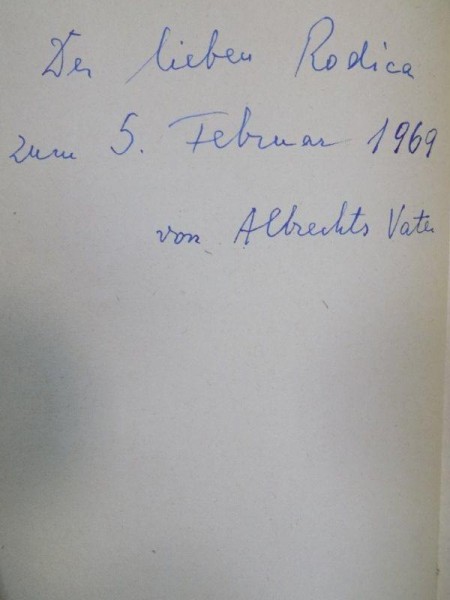 Der lieben Rodica
zum 5. Februar 1969
von Albrechts Vater